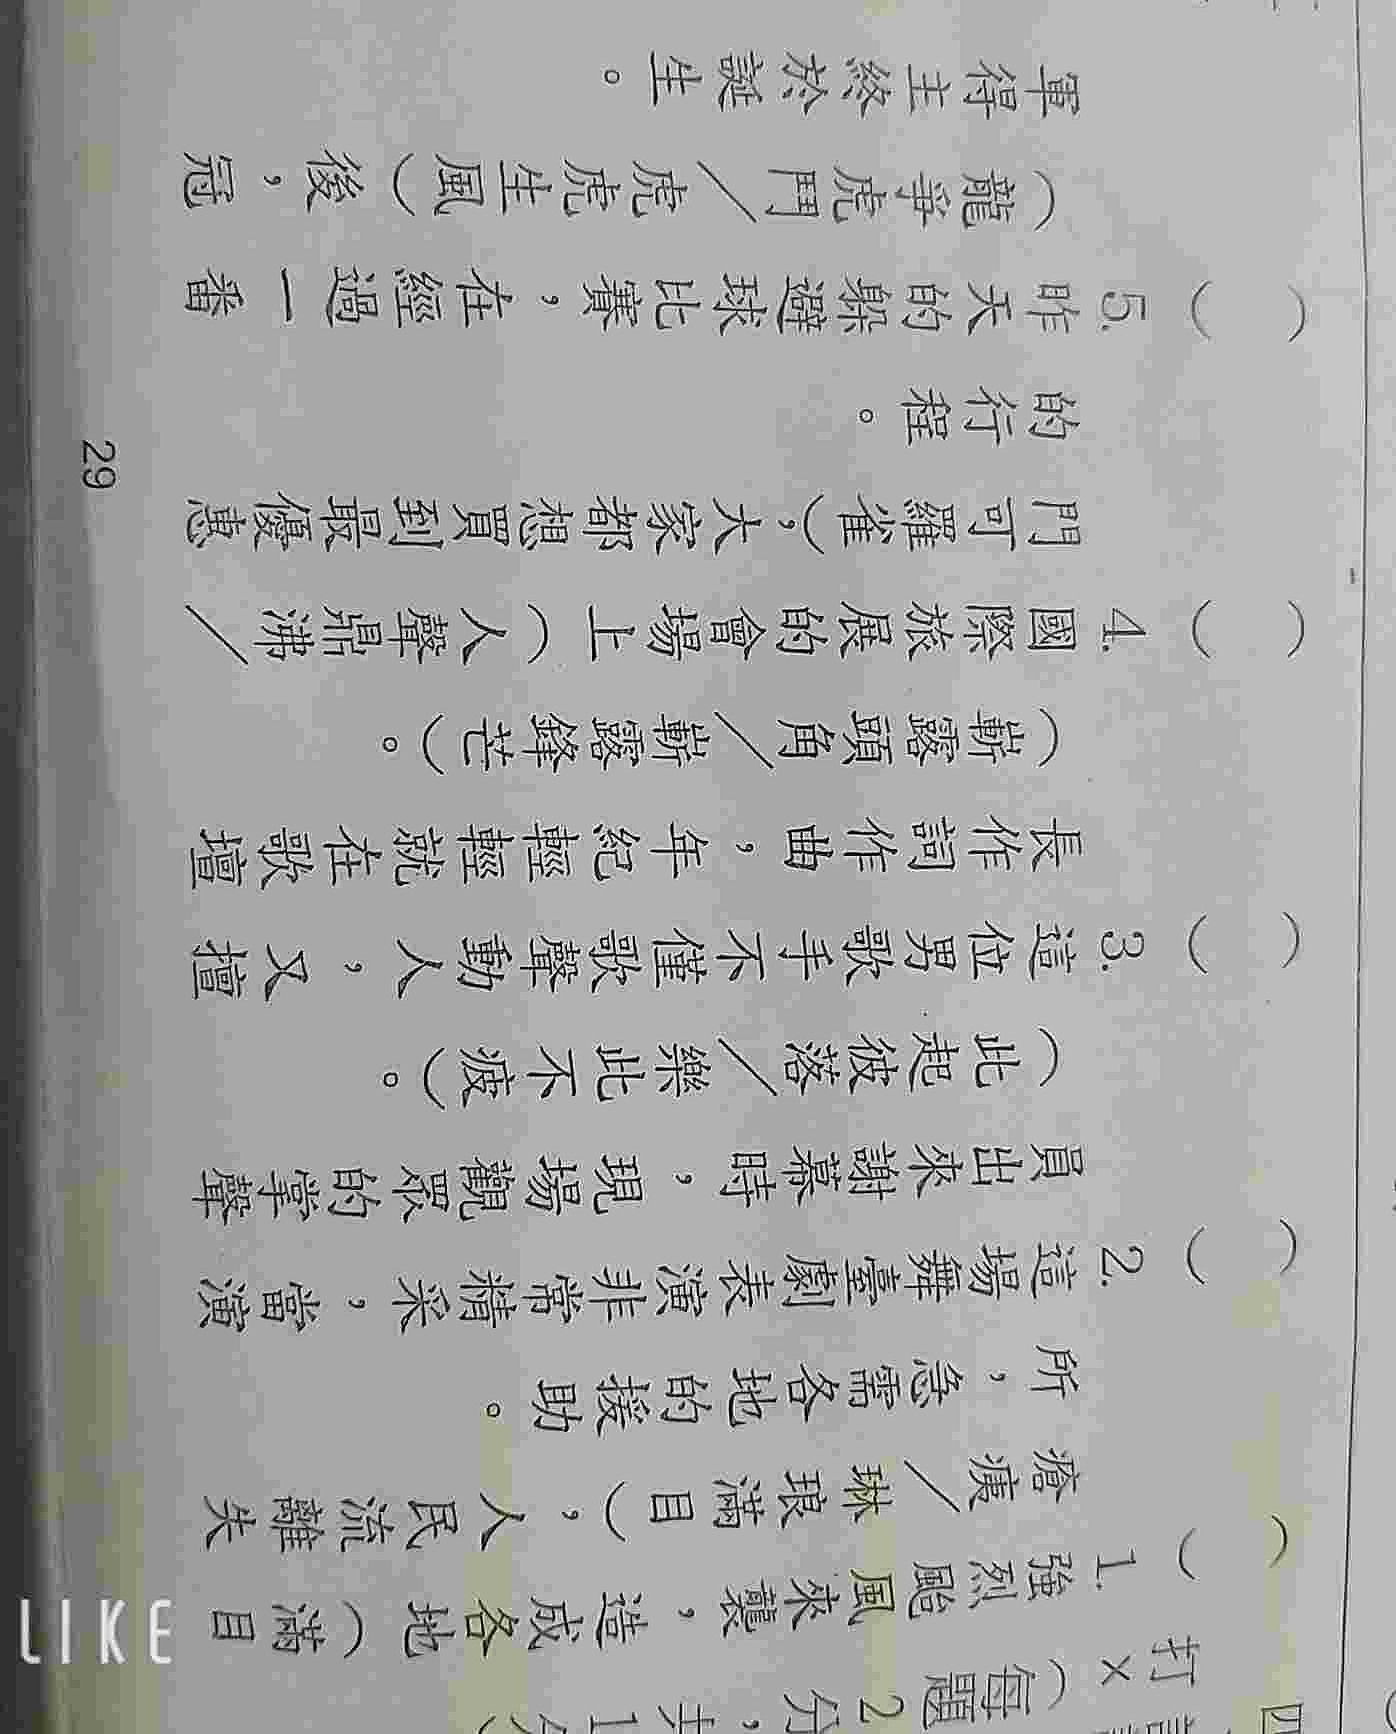 四
打×（每題2分，共1
（　）1.強烈颱風來襲，造成各地（滿目
瘡痍／琳琅滿目），人民流離失
所，急需各地的援助。
（　）2.這場舞臺劇表演非常精采，當演
員出來謝幕時，現場觀眾的掌聲
（此起彼落／樂此不疲）。
（　）3.這位男歌手不僅歌聲動人，又擅
長作詞作曲，年紀輕輕就在歌壇
（嶄露頭角／嶄露鋒芒）。
（　）4.國際旅展的會場上（人聲鼎沸／
門可羅雀），大家都想買到最優惠
的行程。
（　）5.昨天的躲避球比賽，在經過一番
（龍爭虎鬥／虎虎生風）後，冠
軍得主終於誕生。
29
LIKE